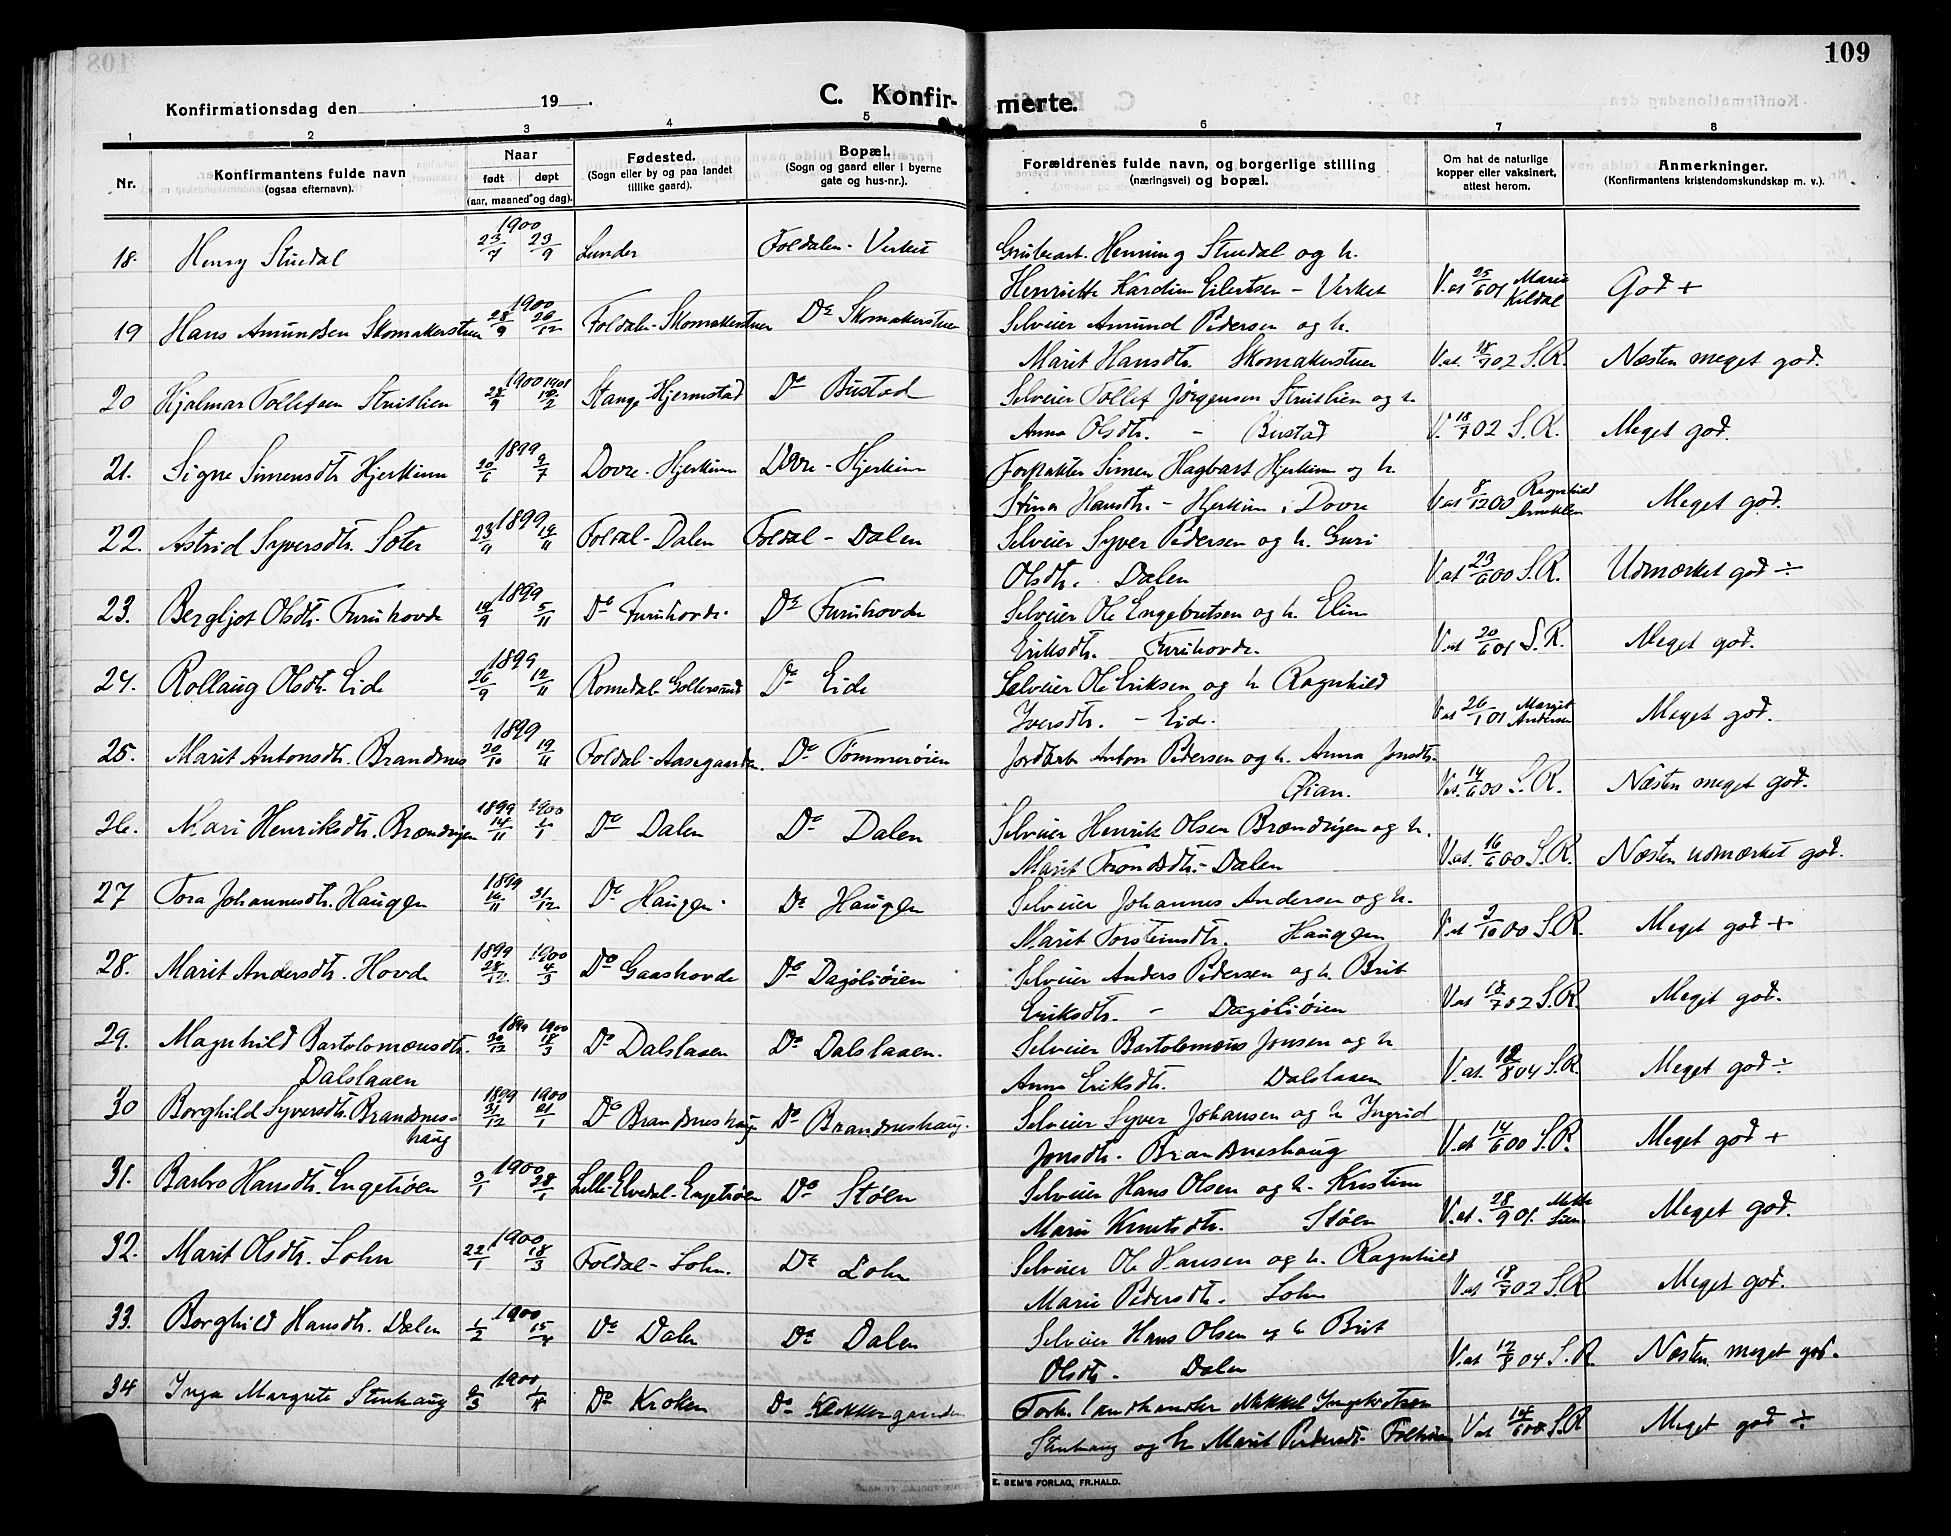 109
C. Konfirmerte.
Konfirmationsdag den 19 .
1 2 3 4 5 6 7 8
Nr. Konfirmantens fulde navn (ogsaa efternavn). Naar født døpt (aar, maaned og dag). Fødested. (Sogn eller by og paa landet tillike gaard). Bopæl. (Sogn og gaard eller i byerne gate og hus-nr.). Forældrenes fulde navn, og borgerlige stilling (næringsvei) og bopæl. Om hat de naturlige kopper eller vaksinert, attest herom. Anmerkninger. (Konfirmantens kristendomskundskap m. v.).
18. Henry Stuedal 1900 23/7 23/9 Lunder Foldalen - Verket Grubearb. Henning Stuedal og h.
Henriette Kardine Eilertsen - Verket V. at 25/6 01 Marie Kildal God +
19 Hans Amundsen Skomakerstuen 1900 28/9 26/12 Foldal - Skomakerstuen Do Skomakerstuen Selveier Amund Pedersen og h.
Marit Hansdtr. Skomakerstuen V. at. 18/7 02 S.R. Næsten meget god.
20 Hjalmar Tollefsen Struilien 1900 1901 28/9 10/2 Stange Hjermstad Do Bustad Selveier Tollef Jörgensen Struilien og h
Anna Olsdtr. - Bustad V. 18/7 02 S.R. Meget god.
21. Signe Simensdtr Hjerkinn 1899 20/6 9/7 Dovre - Hjerkinn Dovre - Hjerkinn Forpakter Simen Hagbart Hjerkinn og h.
Stina Hansdtr. - Hjerkinn i Dovre V. at 8/12 00 Ragnhild Meget god.
22. Astrid Syversdtr. Soter 1899 23/9 19/11 Foldal - Dalen Foldal - Dalen Selveier Syver Pedersen og h. Guri
Olsdtr. Dalen V. at 23/6 00 S.R. Udmærket god ÷
23. Bergljot Olsdtr. Furuhovde 1899 19/9 5/11 Do Furuhovde Do Furuhovde Selveier Ole Engebretsen og h. Elin
Eriksdtr. Furuhovde. V. at 20/6 01 S.R. Meget god.
24. Rollaug Olsdtr. Eide 1899 26/9 12/11 Romedal Gollersrud Do Eide Selveier Ole Eriksen og h Ragnhild
Iversdtr. - Eide. V. at 26/1 01 Margit Andersen Meget god.
25. Marit Antonsdtr. Brandsnes 1899 20/10 19/11 Foldal - Aasegaarden. Do Tømmerøien Jordarb Anton Pedersen og h. Anna Jonsdtr.
Øian. V. at. 14/6 00 S.R. Næsten meget god.
26. Mari Henriksdtr. Brændvigen 1899 14/11 1900 1/1 Do Dalen Do Dalen Selveier Henrik Olsen Brændvigen og h.
Marit Trondsdtr. - Dalen V. at. 16/6 00 S.R. Næsten udmærket god.
27 Tora Johannesdtr. Haugen 1899 19/11 31/12 Do Haugen Do Haugen Selveier Johannes Andersen og h.
Marit Torsteinsdtr. Haugen V. at 2/10 00 S.R. Meget god +
28. Marit Andersdtr. Hovde 1899 28/12 1900 4/3 Do Gaashovde Do Dagsliøien Selveier Anders Pedersen og h. Brit
Eriksdtr. - Dagsliøien V. at 18/7 02 S.R. Meget god.
29. Magnhild Bartolomæusdtr. Dalslaaen 1899 30/12 1900 18/3 Do Dalslaaen Do Dalslaaen. Selveier Bartolomæus Jonsen og h
Anna Eriksdtr. Dalslaaen V. at. 12/8 04 S.R. Meget god ÷
30 Borghild Syversdtr. Brandsneshaug 1899 31/12 1900 21/1 Do Brandsneshaug Do Brandsneshaug. Selveier Syver Johansen og h Ingrid
Jonsdtr. Brandsneshaug V. at 14/6 00 S.R. Meget god +
31. Barbro Hansdtr. Engetrøen 1900 2/1 28/1 Lille-Elvedal - Engetrøen Do Støen Selveier Hans Olsen og h. Kristine
Marie Knutsdtr. Støen V. at. 28/9 01. Meget god.
32. Marit Olsdtr. Lohn 1900 22/1 18/3 Foldal - Lohn. Do Lohn Selveier Ole Hansen og h. Ragnhild
Marie Pedersdtr. Lohn V. at 18/7 02 S.R Meget god.
33. Borghild Hansdtr. Dalen 1900 1/2 15/4 Do Dalen Do Dalen Selveier Hans Olsen og h Brit
Olsdtr. Dalen V. at 12/8 04 S.R. Næsten meget god.
34 Inga Margrete Stenhaug 1900 2/3 1/4 Do Kroken Do Forh. landhandler Mikkel Ingebretsen
Stenhaug og h Marit Pedersdtr. V. at 14/6 00 S.R Meget god ÷
E. SEM'S FORLAG, FR.HALD.